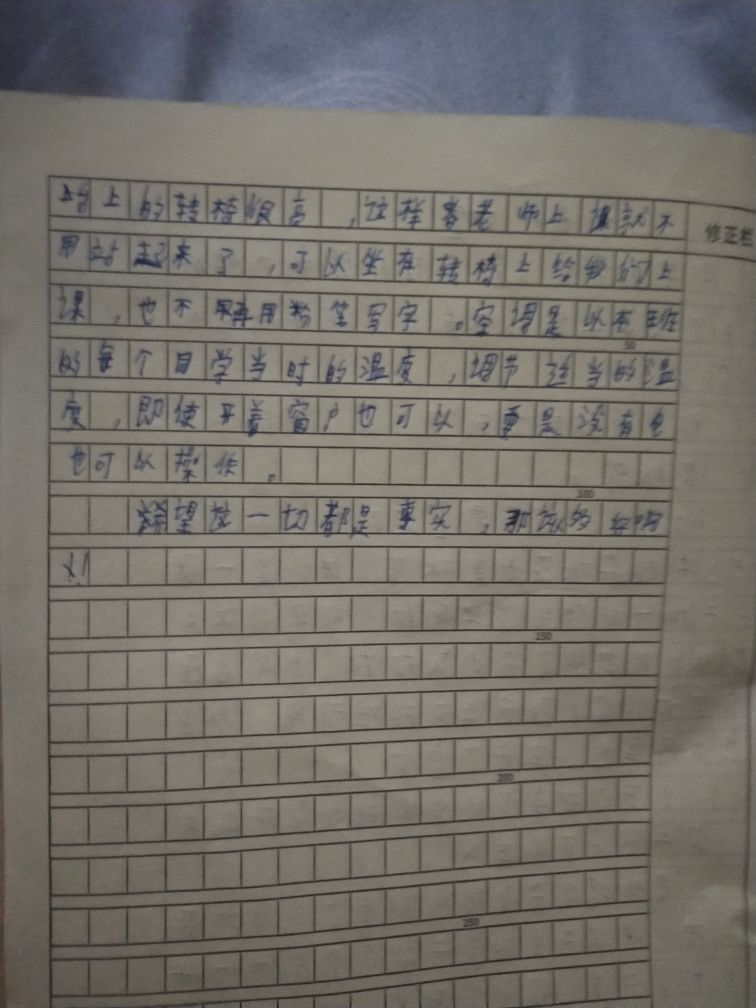 台上的转椅很高，这样害老师上课就不
修正栏
用站起来了，可以坐在转椅上给我们上
课，也不用再用粉笔写字。空调是以在
50
的每个同学当时的温度，调节适当的温
度，即使开着窗户也可以，更是没有电
也可以操作。
100
希望这一切都是事实，那该的好啊
150
200
250